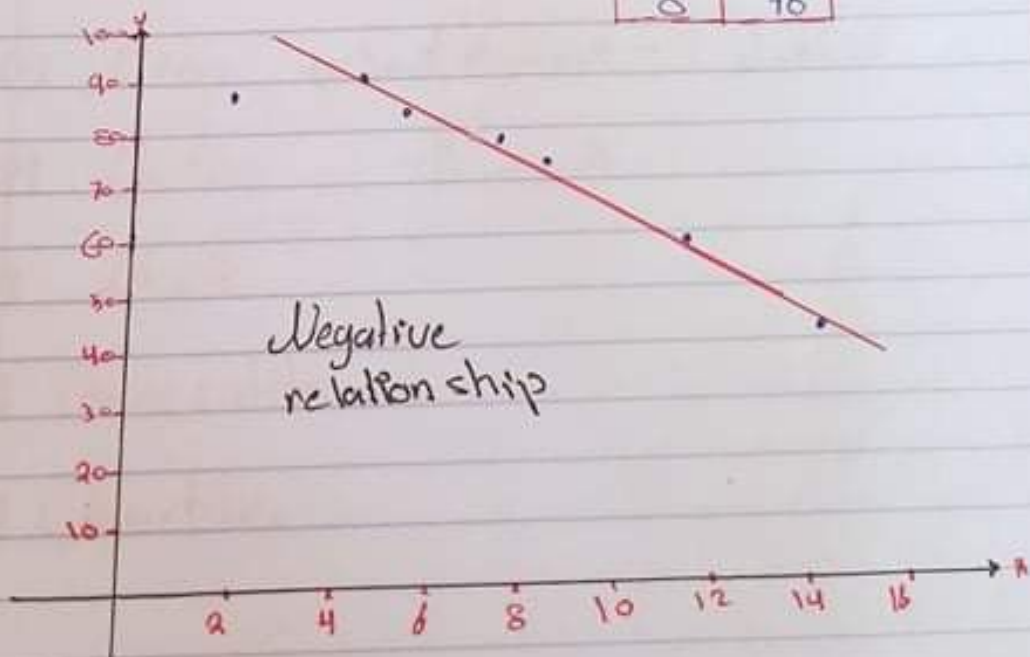 8 70
y
100
90
80
70
60
50
40
30
20
10
Negative
relation ship
2 4 6 8 10 12 14 16